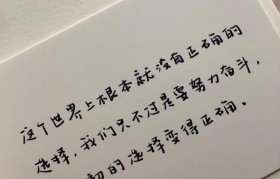 这个世界上根本就没有正确的
选择，我们只不过是要努力奋斗，
的选择变得正确。